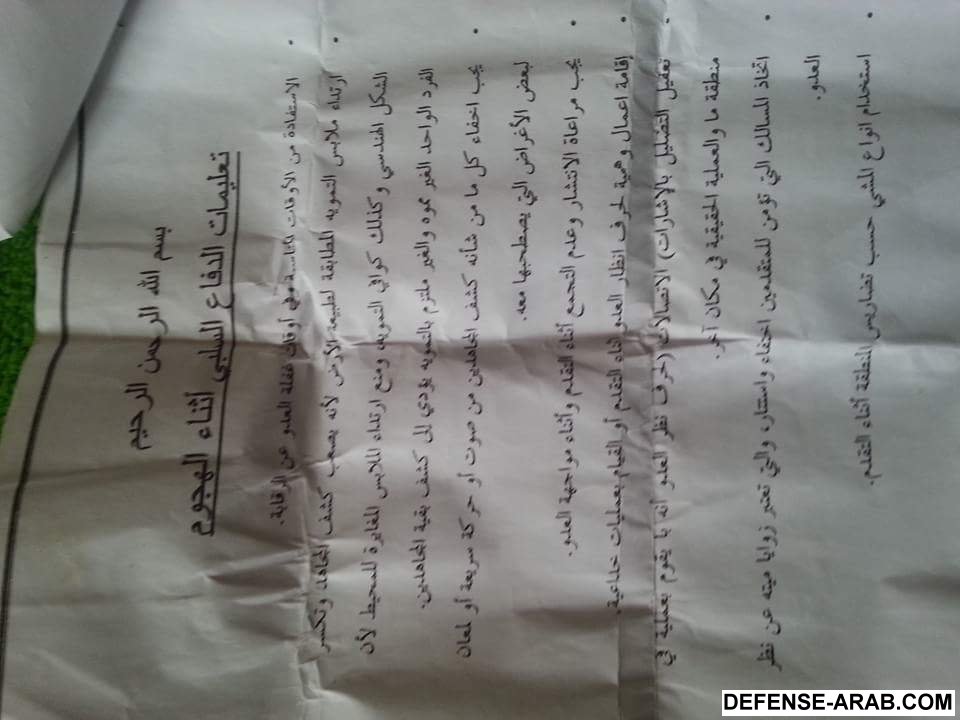 بسم الله الرحمن الرحيم
تعليمات الدفاع السلبي أثناء الهجوم
• الاستفادة من الأوقات المناسبة وفي أوقات غفلة العدو عن الرقابة.
• ارتداء ملابس التمويه المطابقة لطبيعة الأرض لأنه يصعب كشف المجاهد وتكسر
الشكل الهندسي وكذلك كوافي التمويه، ومنع ارتداء الملابس المغايرة للمحيط لأن
الفرد الواحد الغير مموه والغير ملتزم بالتمويه يؤدي الى كشف بقية المجاهدين.
• يجب اخفاء كل ما من شأنه كشف المجاهدين من صوت أو حركة سريعة أو لمعان
لبعض الأغراض التي يصطحبها معه.
• يجب مراعاة الانتشار وعدم التجمع أثناء التقدم وأثناء مواجهة العدو.
• إقامة اعمال وهمية لحرف انظار العدو اثناء التقدم أو القيام بعمليات خداعية.
• تفعيل التضليل بالإشارات) الاتصالات (حرف نظر العدو أنه با يقوم بعملية في
منطقة ما والعملية الحقيقية في مكان آخر.
• اتخاذ المسالك التي تؤمن للمتقدمين اختفاء واستتار، والتي تعتبر زوايا ميته عن نظر
العدو.
• استخدام انواع المشي حسب تضاريس المنطقة أثناء التقدم.
DEFENSE-ARAB.COM